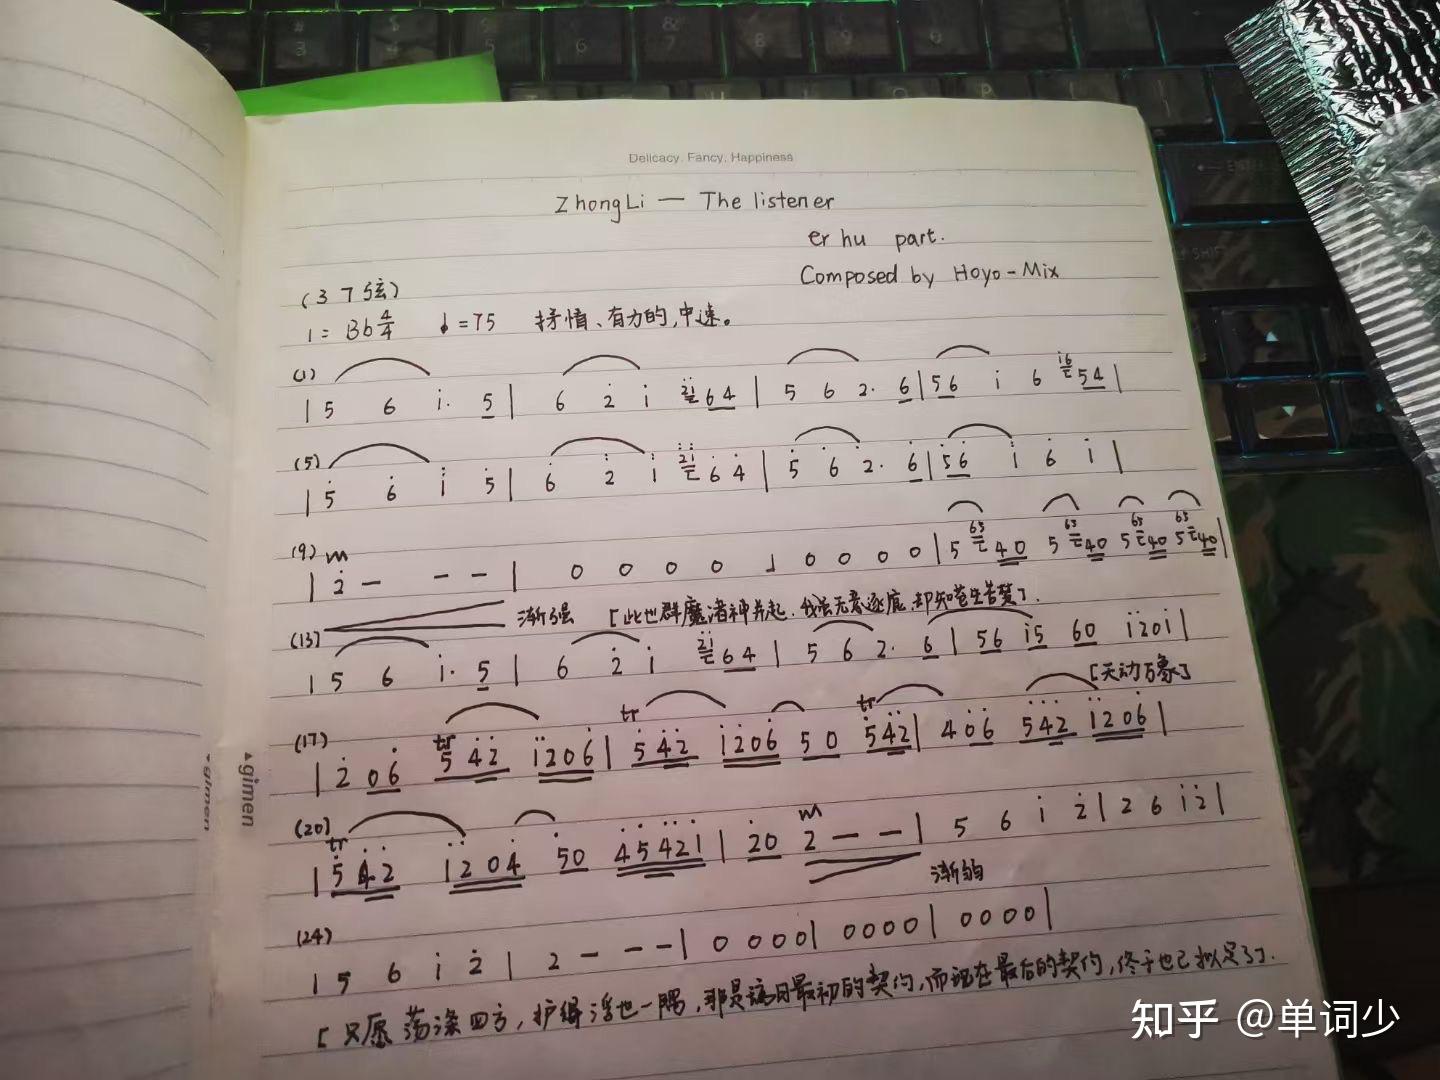 Delicacy, Fancy, Happiness
ZhongLi — The listener
er hu part.
Composed by Hoyo-Mix
(37弦)
1=Bb 4/4 ♩=75 抒情、有力的,中速。
(1)
| 5 6 i̇. 5 | 6 2̇ i̇ 2̇i̇ 64 | 5 6 2. 6 | 56 i̇ 6 i̇6 54 |
(5)
| 5̇ 6̇ i̇ 5̇ | 6̇ 2̇ i̇ 2̇i̇ 6̇ 4̇ | 5̇ 6̇ 2̇. 6̇ | 5̇6̇ i̇ 6̇ i̇ |
(9)
| 2̇ — — — | 0 0 0 0 | 0 0 0 0 | 5 65 40 5 65 40 5 65 40 5 65 40 |
渐强 [此世群魔诸神并起,我虽无意逐鹿,却知苍生苦楚].
(13)
| 5 6 i̇. 5 | 6 2̇ i̇ 2̇i̇ 64 | 5 6 2. 6 | 56 i̇5 60 i̇20i̇ |
[天动万象]
(17)
| 2̇ 06̇ tr 5̇4̇2̇ i̇206̇ | tr 5̇4̇2̇ i̇206̇ 50 tr 5̇4̇2̇ | 406̇ 5̇4̇2̇ i̇206̇ |
(20)
| tr 5̇4̇2̇ i̇204̇ 5̇0 4̇5̇4̇2̇i̇ | 2̇0 2 — — | 5 6 i̇ 2̇ | 2 6 i̇2̇ |
渐弱
(24)
| 5 6 i̇ 2̇ | 2 — — — | 0 0 0 0 | 0 0 0 0 | 0 0 0 0 |
[只愿荡涤四方,护得浮世一隅,那是往日最初的契约,而现在最后的契约,终于也已拟定了].
gimen
gimen
知乎 @单词少